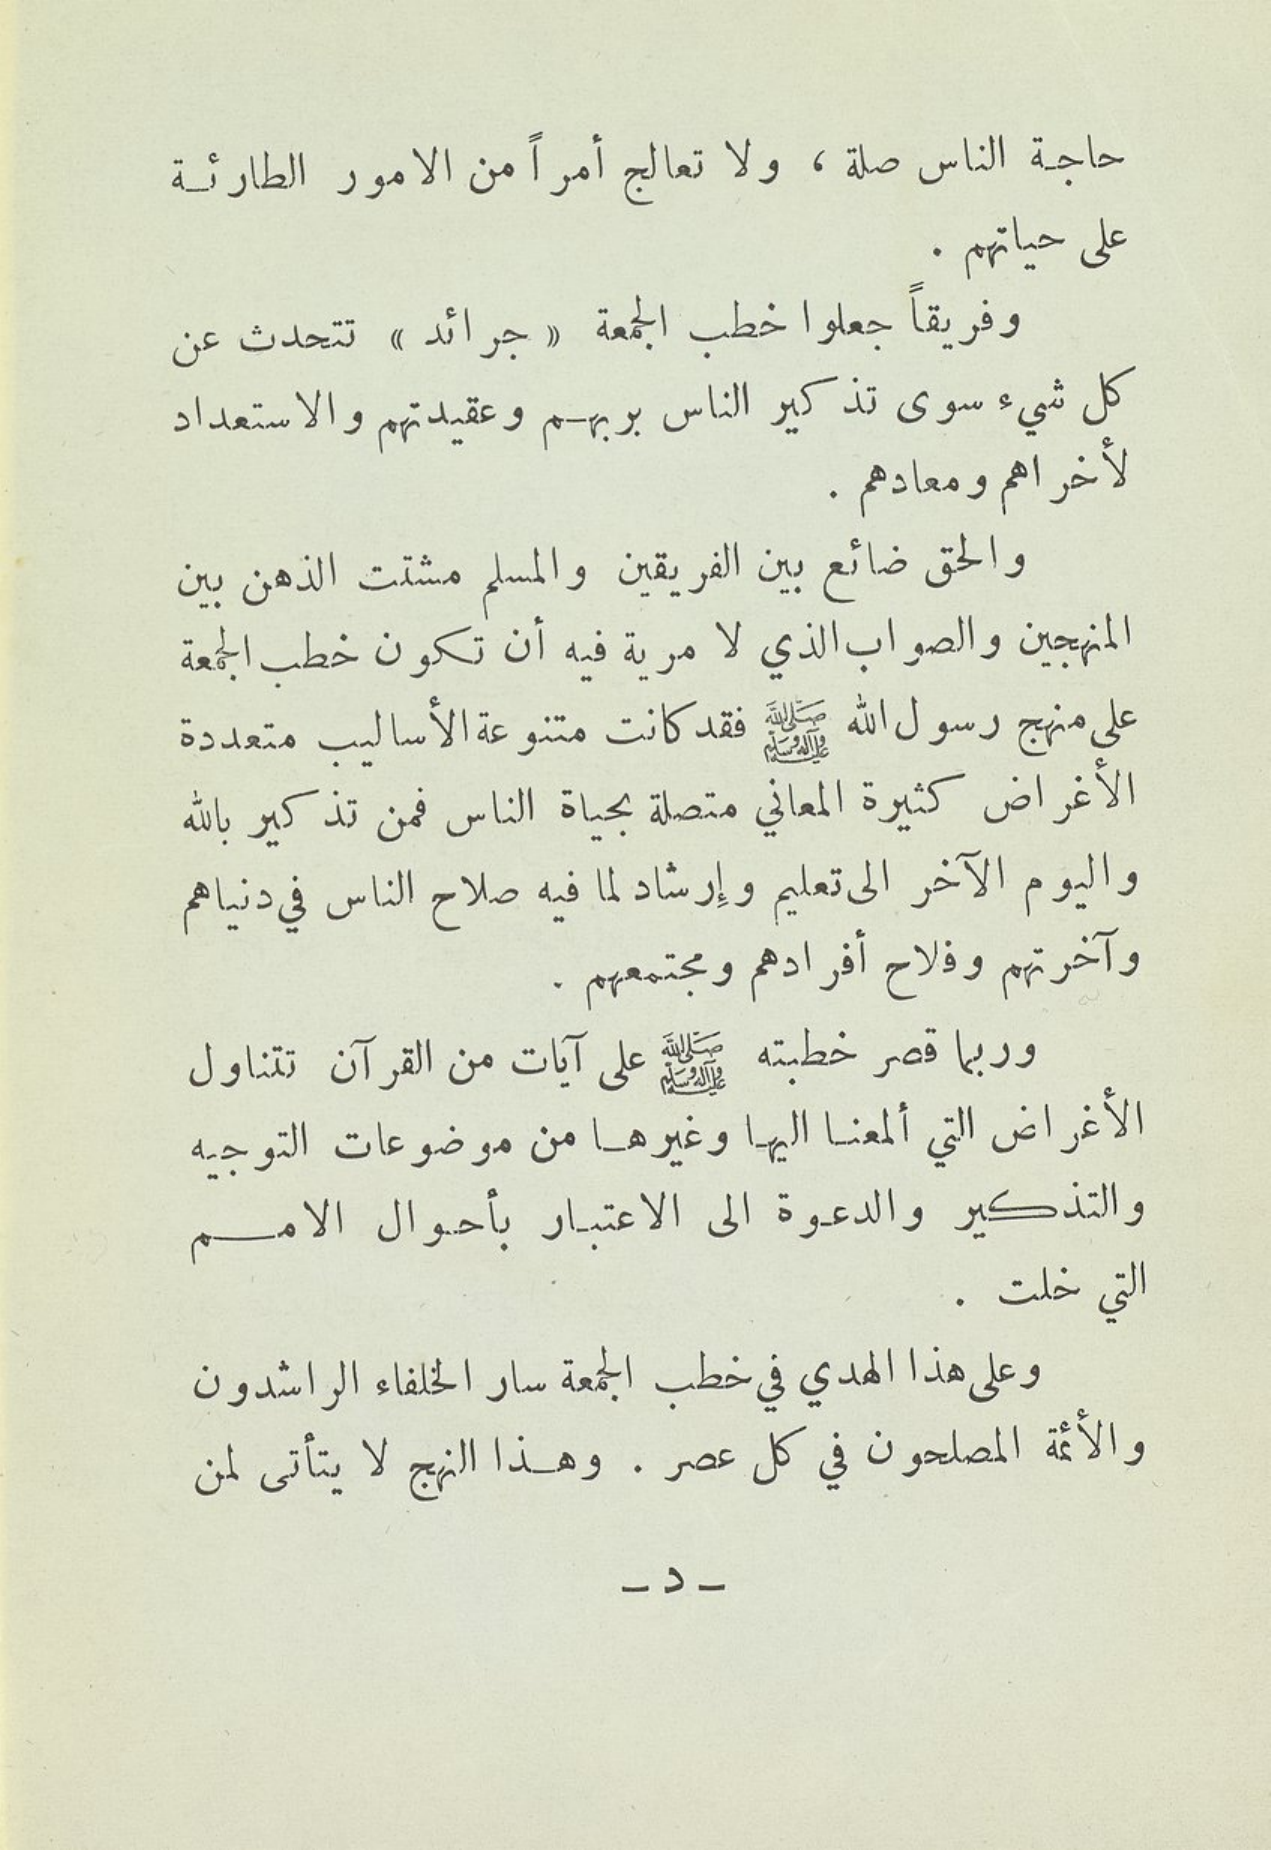 حاجة الناس صلة ، ولا تعالج أمراً من الامور الطارئة
على حياتهم .
وفريقاً جعلوا خطب الجمعة « جرائد » تتحدث عن
كل شيء سوى تذكير الناس بربهم وعقيدتهم والاستعداد
لأخراهم ومعادهم .
والحق ضائع بين الفريقين والمسلم مشتت الذهن بين
المنهجين والصواب الذي لا مرية فيه أن تكون خطب الجمعة
على منهج رسول الله صَلَّى اللَّهُ عَلَيْهِ وَآلِهِ وَسَلَّم فقد كانت متنوعة الأساليب متعددة
الأغراض كثيرة المعاني متصلة بحياة الناس فمن تذكير بالله
واليوم الآخر الى تعليم وإرشاد لما فيه صلاح الناس في دنياهم
وآخرتهم وفلاح أفرادهم ومجتمعهم .
وربما قصر خطبته صَلَّى اللَّهُ عَلَيْهِ وَآلِهِ وَسَلَّم على آيات من القرآن تتناول
الأغراض التي ألمعنا اليها وغيرها من موضوعات التوجيه
والتذكير والدعوة الى الاعتبار بأحوال الامم
التي خلت .
وعلى هذا الهدي في خطب الجمعة سار الخلفاء الراشدون
والأئمة المصلحون في كل عصر . وهذا النهج لا يتأتى لمن
ـ د ـ